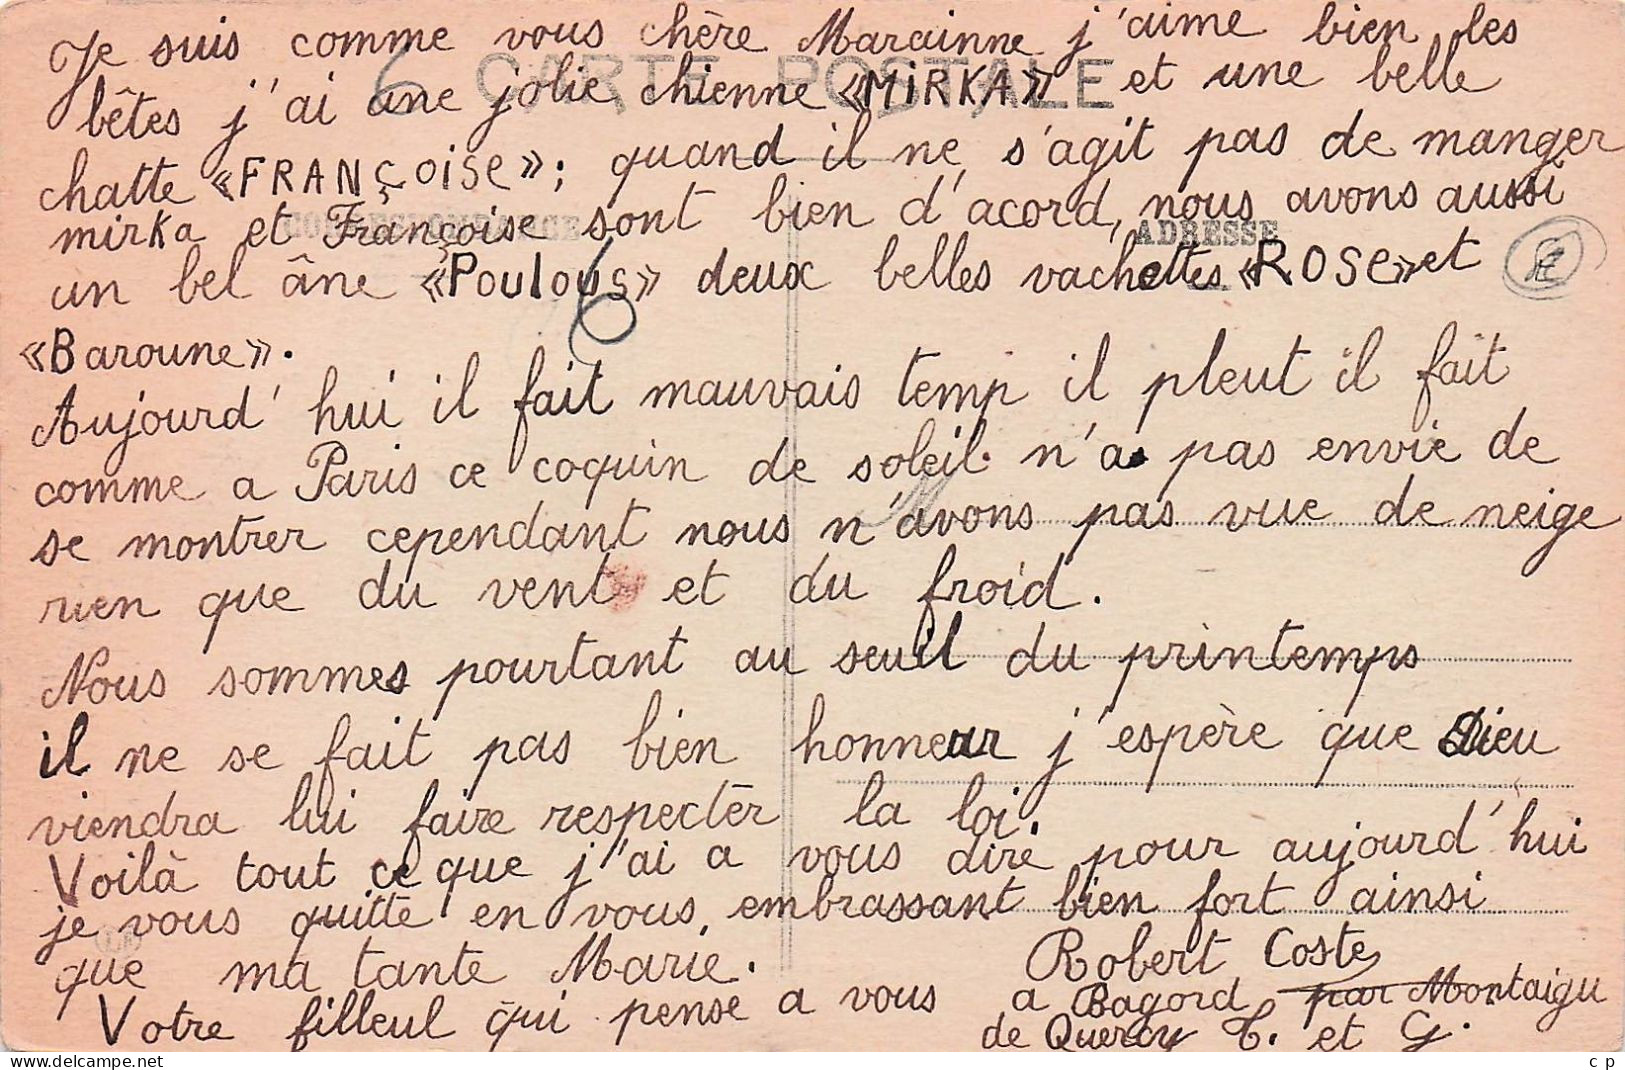 Je suis comme vous chère Marainne j'aime bien les
CARTE POSTALE
bêtes j'ai une jolie chienne «MiRKA» et une belle
chatte «FRANÇOise»; quand il ne s'agit pas de manger
CORRESPONDANCE
ADRESSE
mirka et Françoise sont bien d'acord, nous avons aussi
un bel âne «Poulous» deux belles vachettes «ROSe» et
«Baroune».
Aujourd'hui il fait mauvais temp il pleut il fait
comme a Paris ce coquin de soleil n'a pas envie de
se montrer cependant nous n'avons pas vue de neige
rien que du vent et du froid.
Nous sommes pourtant au seuil du printemps
il ne se fait pas bien honneur j'espère que Dieu
viendra lui faire respecter la loi.
Voilà tout ce que j'ai a vous dire pour aujourd'hui
je vous quitte en vous embrassant bien fort ainsi
que ma tante Marie.
Robert Coste
Votre filleul qui pense a vous a Bagord par Montaigu
de Quercy T. et G.
c p
www.delcampe.net